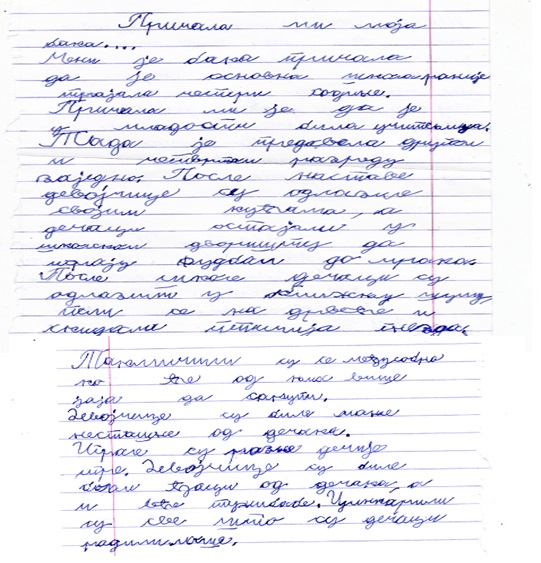 Причала ми моја
бака....
Мени је бака причала
да је основна школа раније
трајала четири године.
Причала ми је да је
у младости била учитељица.
Тада је предавала другом
и четвртом разреду
заједно. После наставе
девојчице су одлазиле
својим кућама, а
дечаци остајали у
школском дворишту да
играју фудбал до мрака.
После школе дечаци су
одлазили у оближњу шуму,
пели се на дрвеће и
скидали птичија гнезда.
Такмичили су се међусобно
ко ће од њих више
јаја да сакупи.
Девојчице су биле мање
несташне од дечака.
Играле су разне дечије
игре. Девојчице су биле
бољи ђаци од дечака, а
и веће тужибабе. Цинкариле
су све што су дечаци
радили лоше.